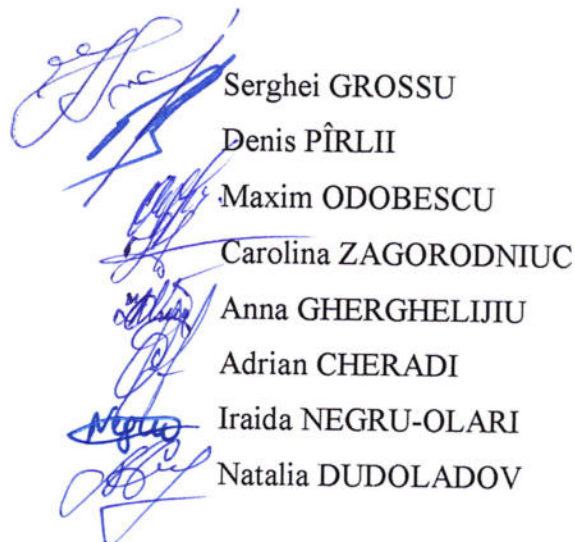 Serghei GROSSU
Denis PÎRLII
Maxim ODOBESCU
Carolina ZAGORODNIUC
Anna GHERGHELIJIU
Adrian CHERADI
Negru Iraida NEGRU-OLARI
Natalia DUDOLADOV